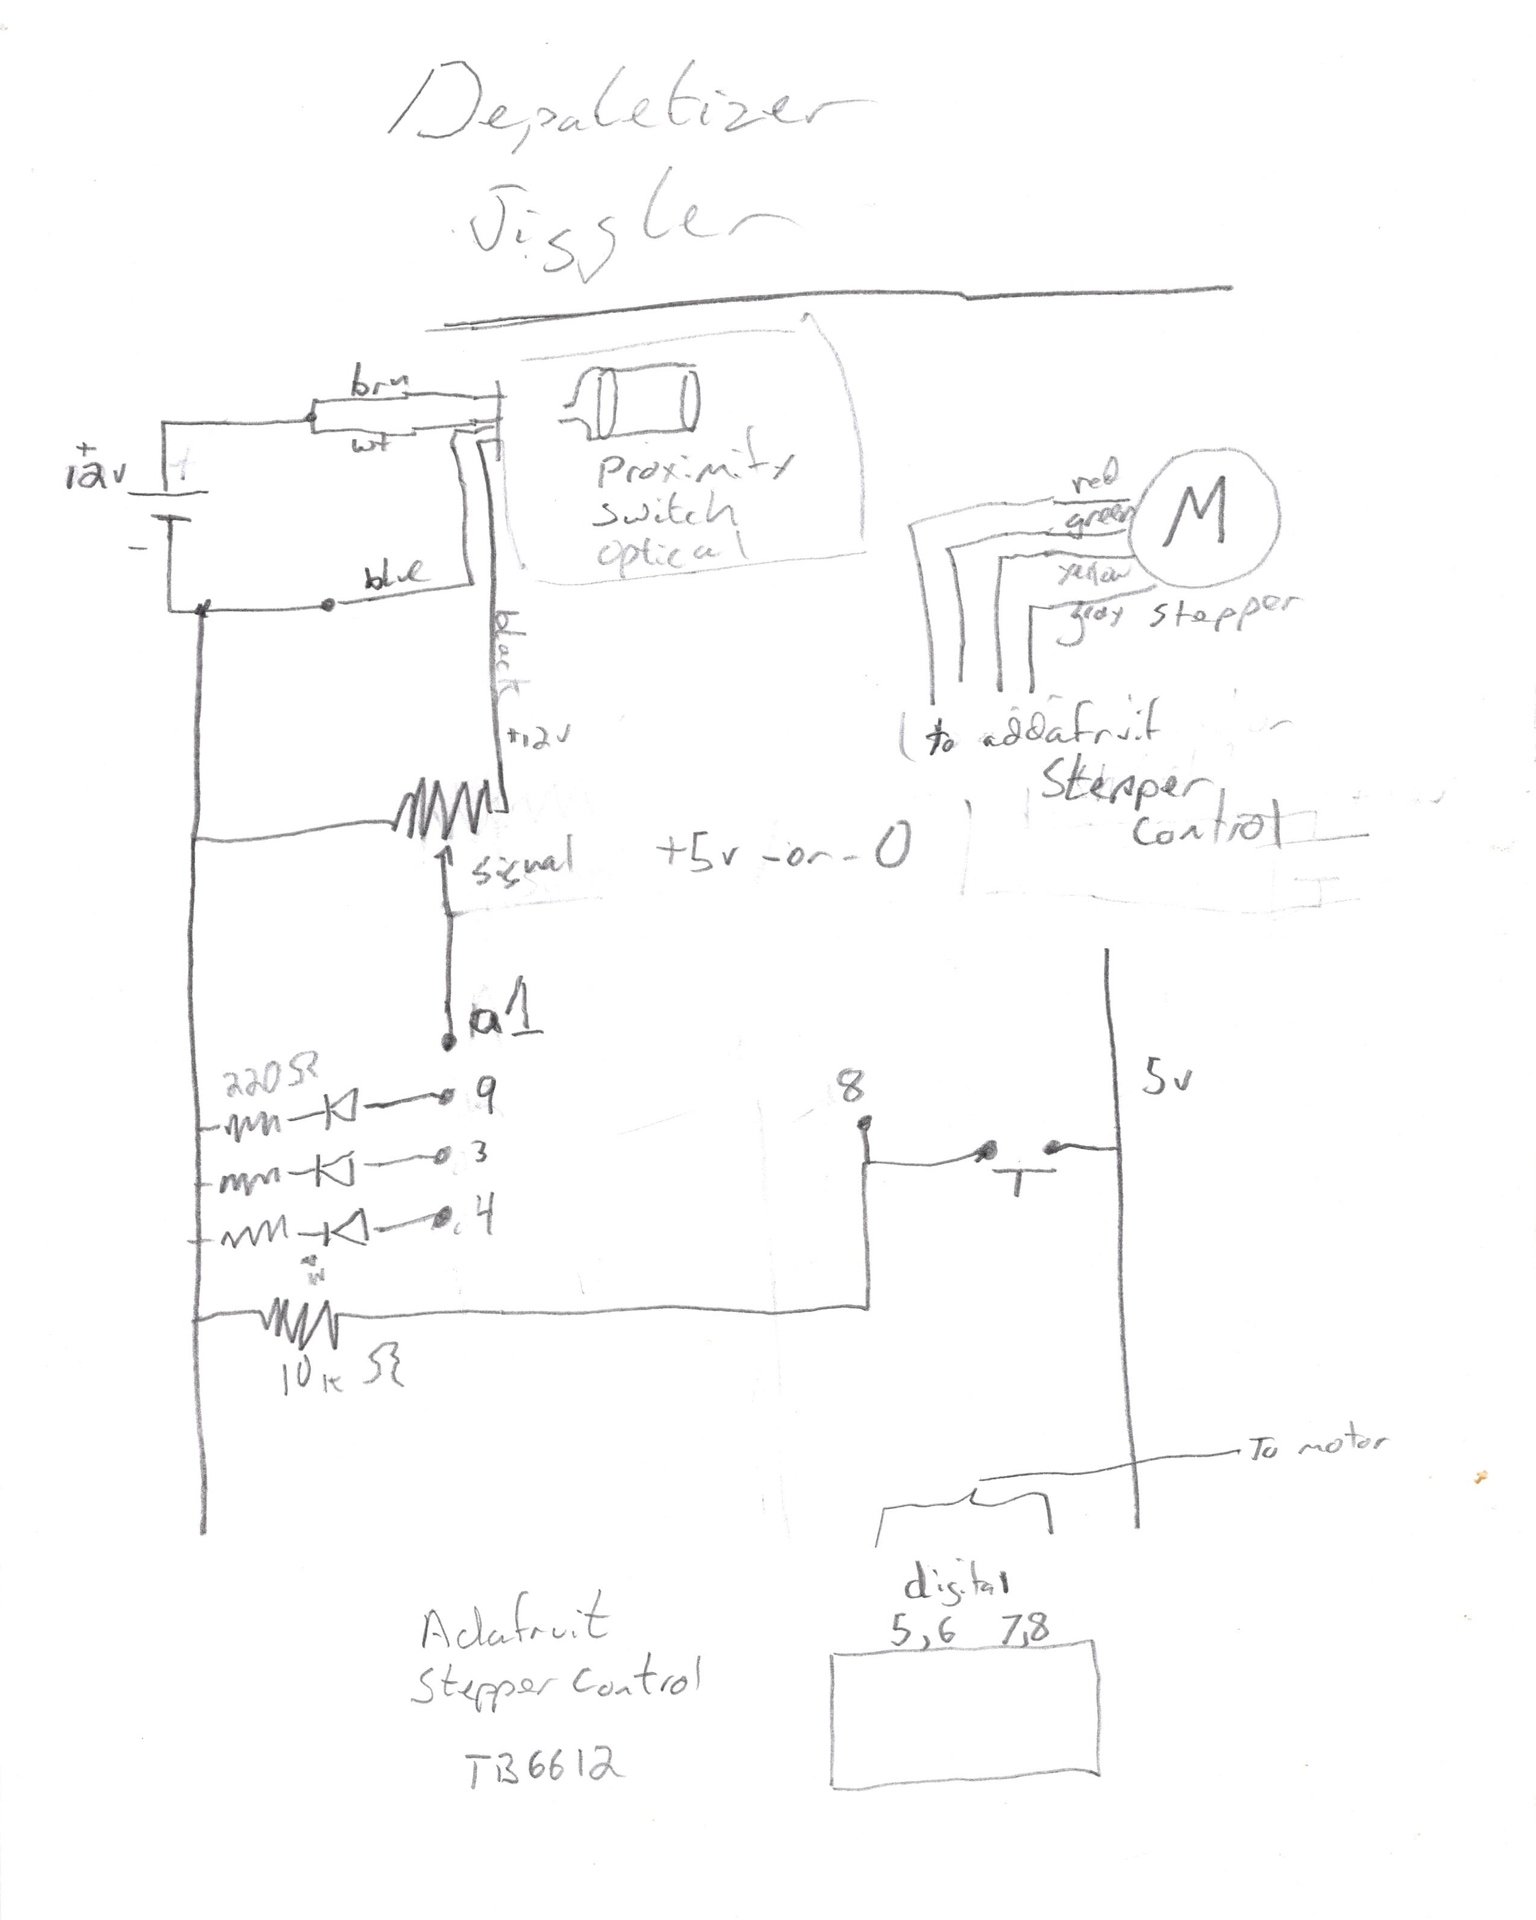 Depaletizer
Jiggler
brn
wt
+
12v
+
-
blue
black
+12v
Proximity
switch
optical
red
green
yellow
gray
M
stepper
to addafruit
Stepper
Control
signal
+5v -or- 0
a1
220Ω
9
3
4
10kΩ
8
5v
To motor
digital
5,6 7,8
Adafruit
Stepper Control
TB6612